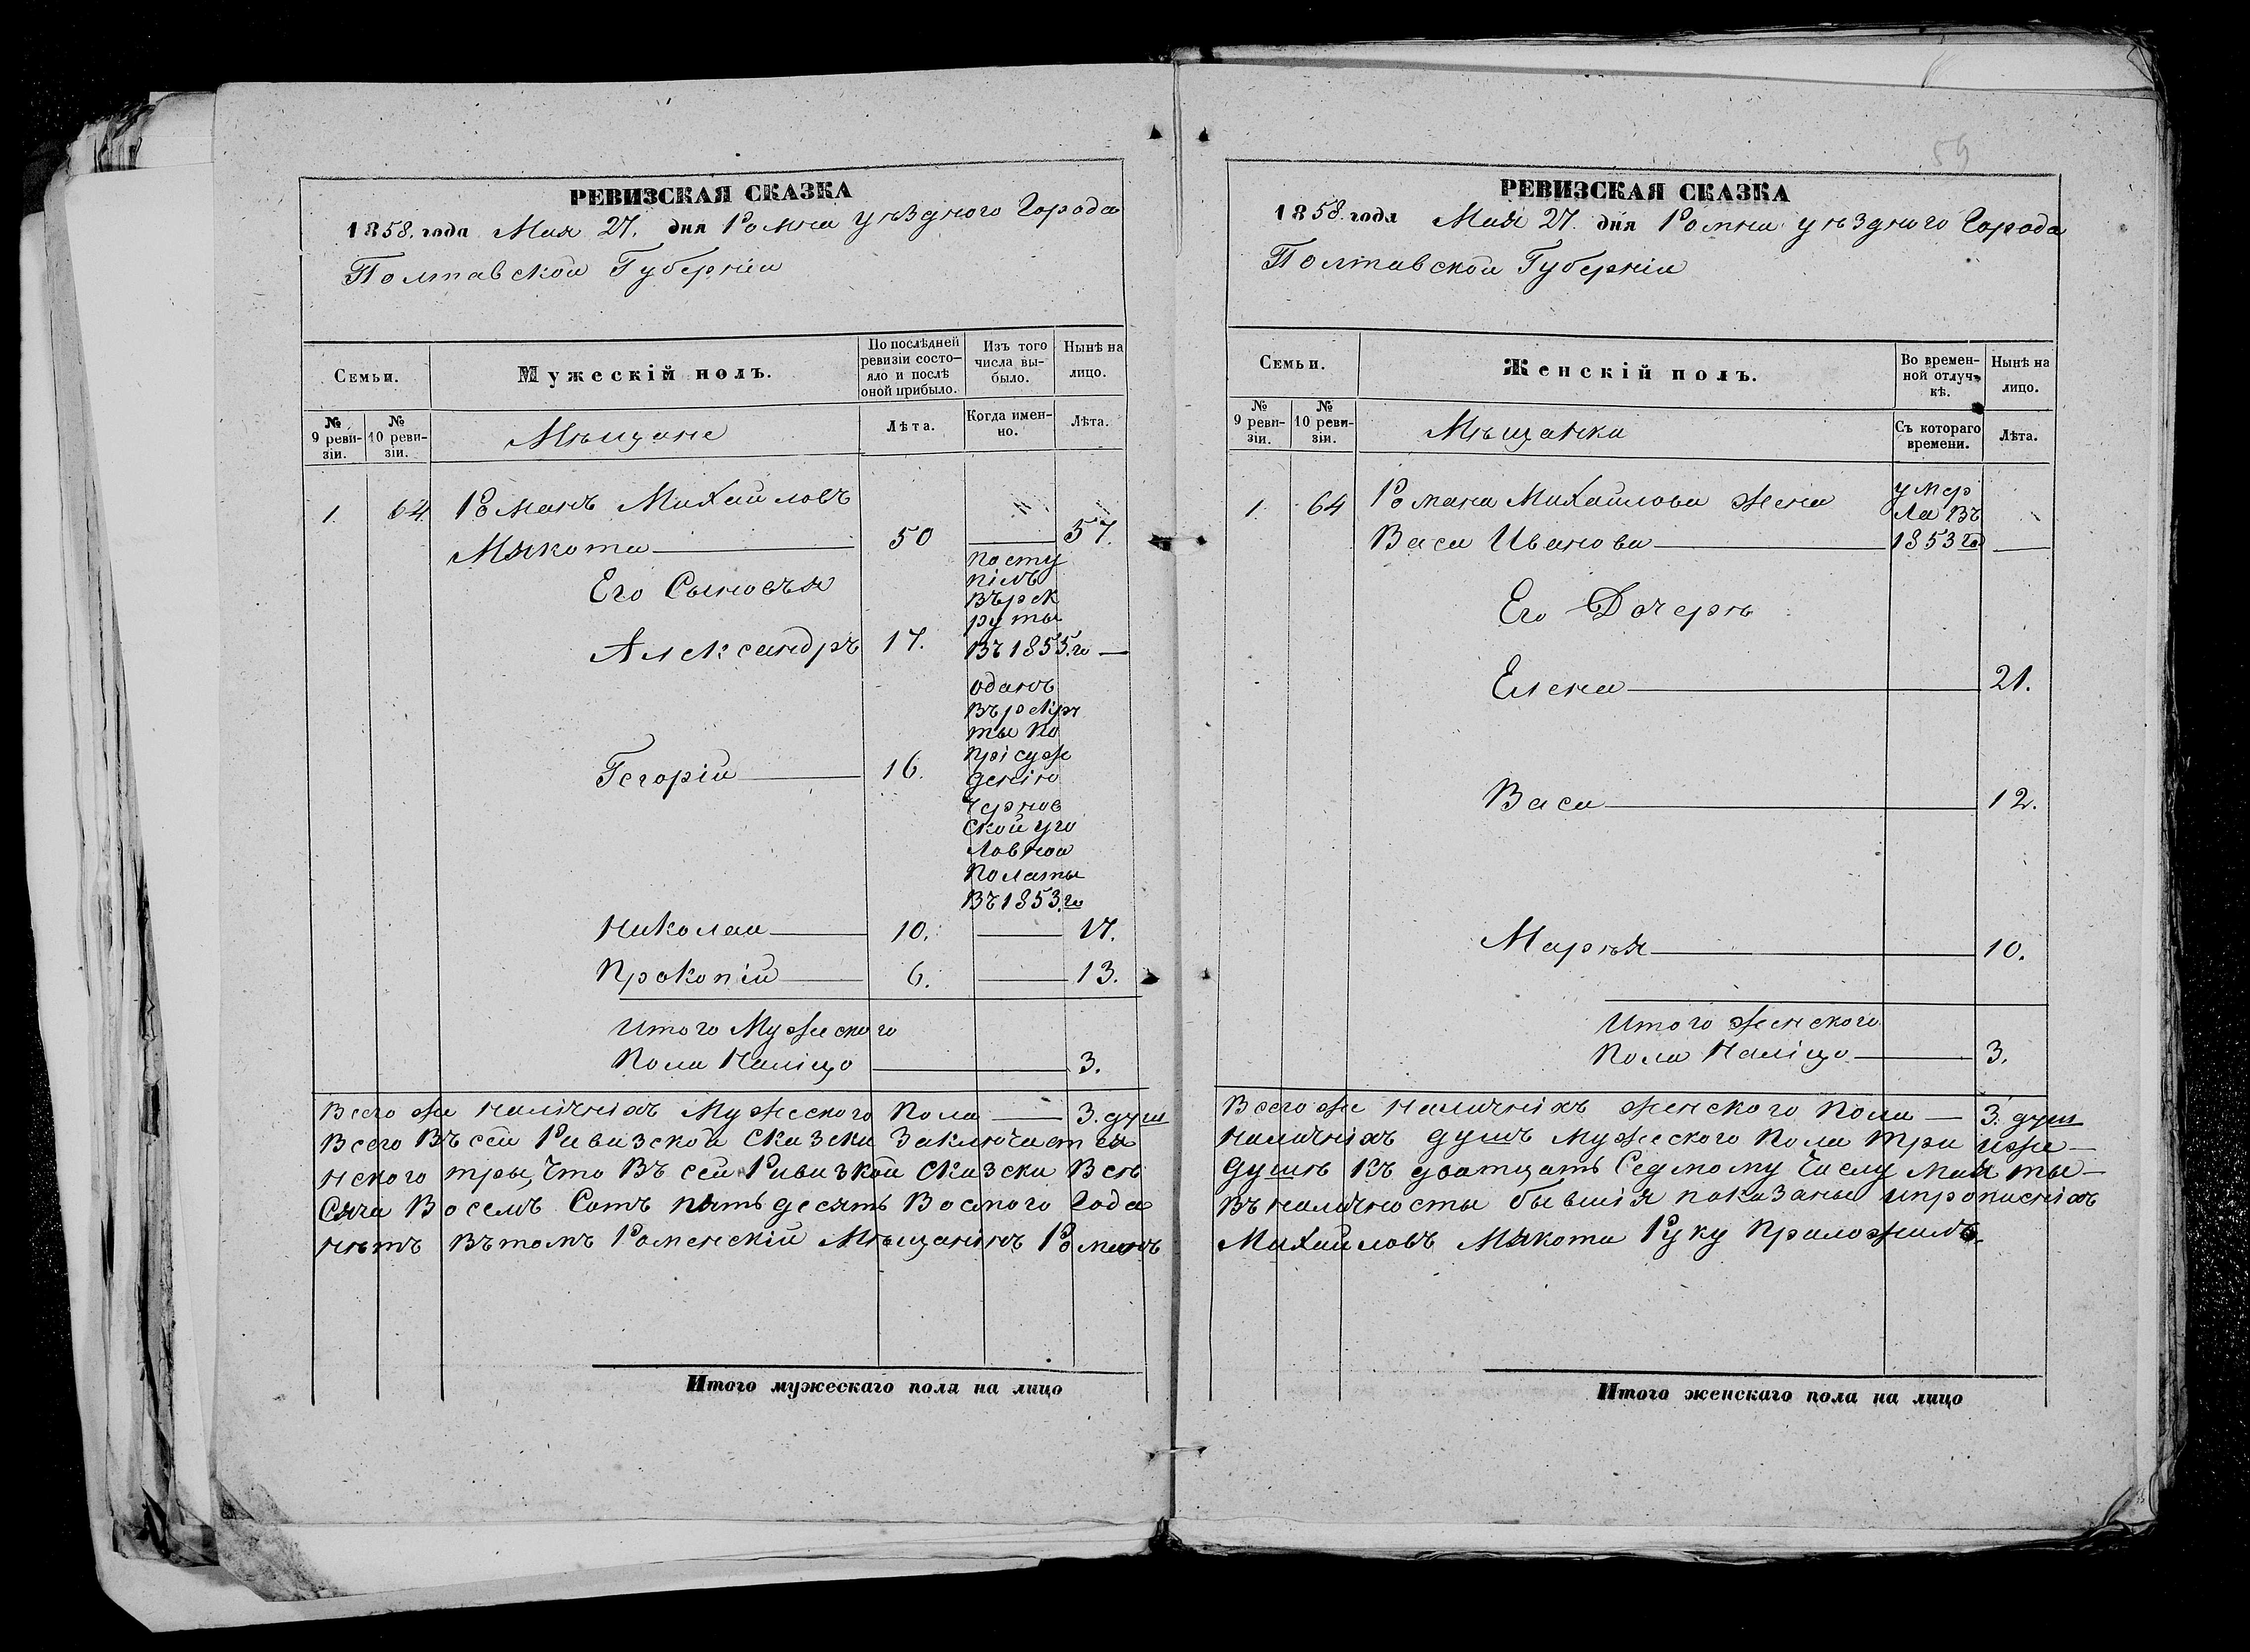 РЕВИЗСКАЯ СКАЗКА
1858. года Мая 27. дня Ромна уѣздного Города
Полтавской Губерніи
Семьи.
Мужескій полъ.
По послѣдней ревизіи состо-
яло и послѣ
оной прибыло.
Изъ того
числа вы-
было.
Нынѣ на
лицо.
№
9 реви-
зіи.
№
10 реви-
зіи.
Мѣщане
Лѣта.
Когда имен-
но.
Лѣта.
1. 64. Романъ Михайловъ "
Мякота 50 57.
Его Сыновья
Александръ 17.
посту
пілъ
въ рек
руты
въ 1855. го
Гегорій 16.
оданъ
въ рекру
ты по
прісуж
денію
Чернов
ской уго
ловной
полаты
въ 1853. го
Николай 10. 17.
Прокопій 6. 13.
Итого Мужеского
Пола Наліцо 3.
Всего же налічніхъ Мужеского Пола 3. душ
Всего Въ сей Ривизской сказки Заключаетъся
нского тры, Что Въ сей Ривизкой сказски Всѣ
Сяча Восемъ Сотъ пятьдесять Восмого Года
нѣтъ Вътомъ Роменскій Мѣщанінъ Романъ
Итого мужескаго пола на лицо
59
РЕВИЗСКАЯ СКАЗКА
1858. года Мая 27. дня Ромна уѣздного Города
Полтавской Губерніи
Семьи.
Женскій полъ.
Во времен-
ной отлуч-
кѣ.
Нынѣ на
лицо.
№
9 реви-
зіи.
№
10 реви-
зіи.
Мѣщанки
Съ котораго
времени.
Лѣта.
1. 64 Романа Михайлова жена
Васа Иванова
умер
ла Въ
1853 го
Его Дочерѣ
Елена 21.
Васа 12.
Марѣя 10.
Итого женского
Пола Наліцо 3.
Всего же наличніхъ женского пола 3. душ
наличніхъ душъ мужеского пола три иже-
душъ къ дватцать Седмому Числу мая ты-
Въ наличносты бывшія показаны ипрописніхъ
Михайловъ Мякота Руку Приложилъ.
Итого женскаго пола на лицо